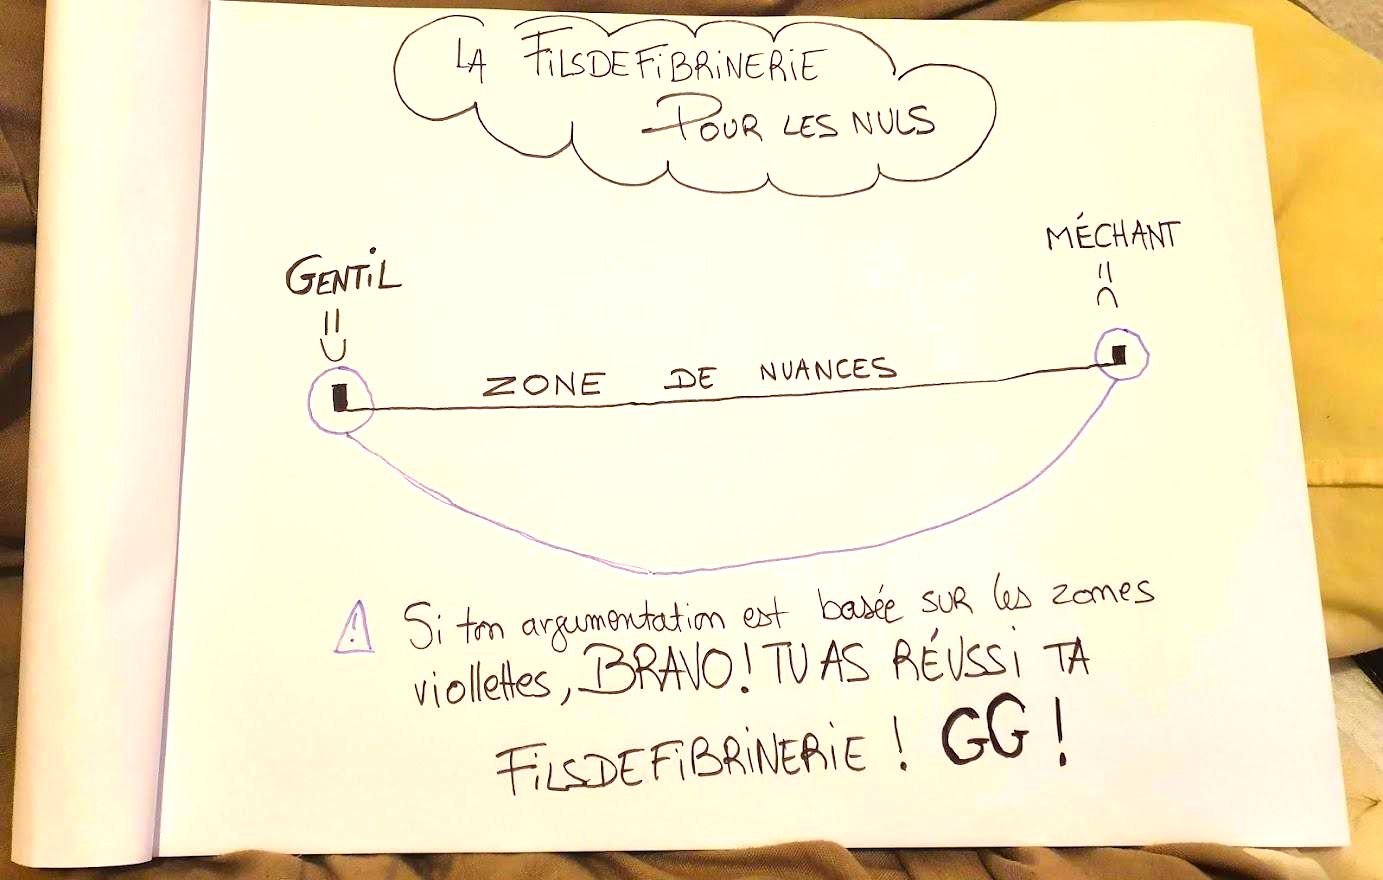 LA FiLSDEFiBRiNERiE
POUR LES NULS
GENTiL
MÉCHANT
ZONE DE NUANCES
! Si ton argumentation est basée SUR les zones
viollettes, BRAVO! TU AS RÉUSSi TA
FiLSDEFiBRiNERiE ! GG !